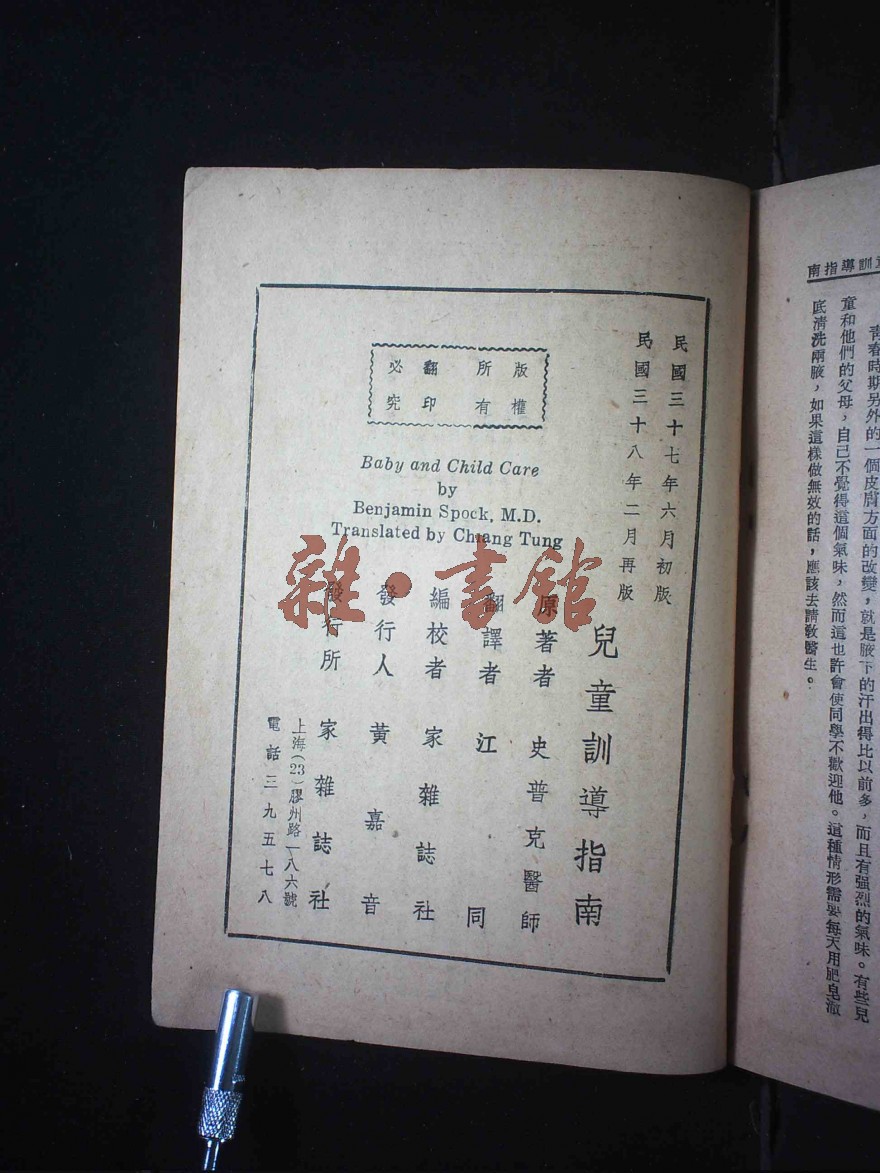 民國三十七年六月初版
民國三十八年二月再版
版權
所有
翻印
必究
Baby and Child Care
by
Benjamin Spock, M.D.
Translated by Chiang Tung
兒童訓導指南
原著者 史普克醫師
翻譯者 江同
編校者 家雜誌社
發行人 黃嘉音
發行所 家雜誌社
上海(23)膠州路一八六號
電話三九五七八
雜·書館
南指導訓
青春時期另外的一個皮膚方面的改變,就是腋下的汗出得比以前多,而且有强烈的氣味。有些兒
童和他們的父母,自己不覺得這個氣味,然而這也許會使同學不歡迎他。這種情形需要每天用肥皂澈
底清洗兩腋,如果這樣做無效的話,應該去請教醫生。